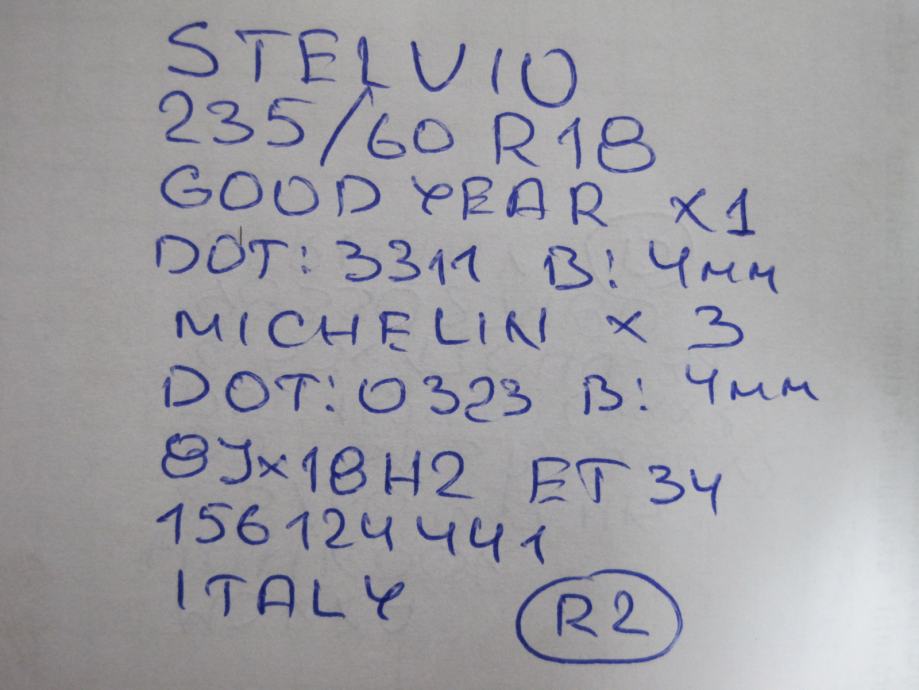 STELVIO
235/60 R18
GOOD YEAR x1
DOT: 3311 B: 4мм
MICHELIN x 3
DOT: 0323 B: 4мм
8Jx18H2 ET 34
156124441
ITALY R2